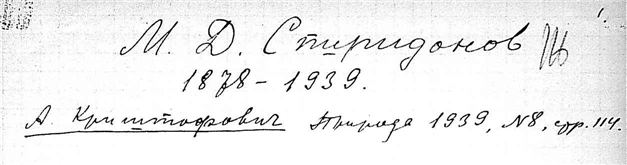 1.
М. Д. Спиридонов
1878 - 1939.
А. Криштофович Природа 1939, N8, стр. 114.